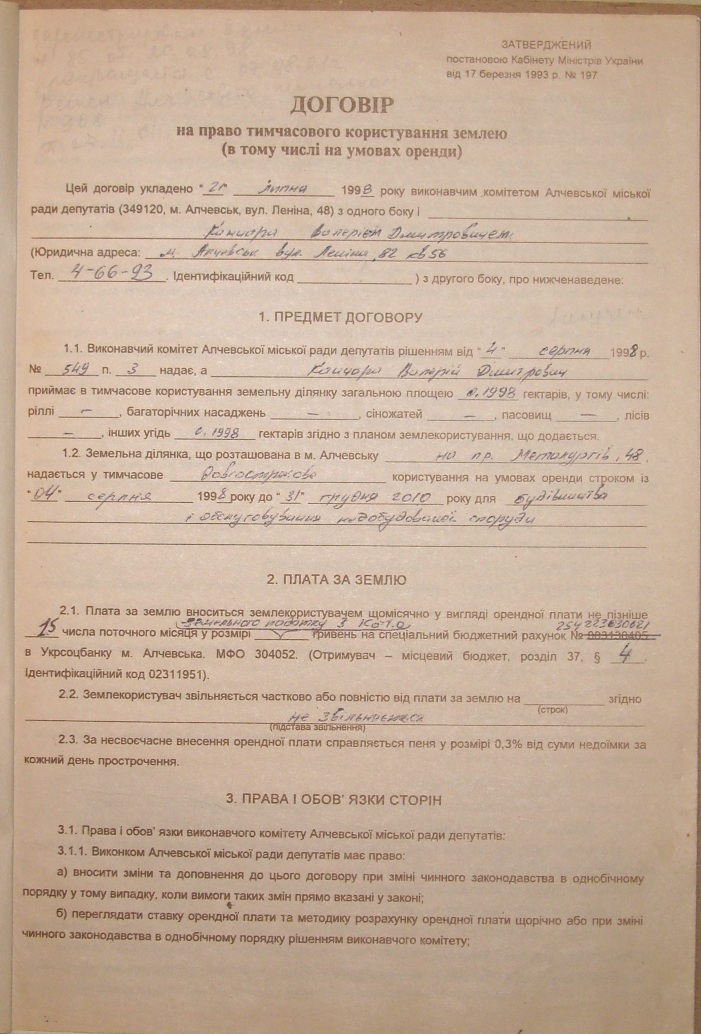 ЗАТВЕРДЖЕНИЙ
постановою Кабінету Міністрів України
від 17 березня 1993 р. № 197
ДОГОВІР
на право тимчасового користування землею
(в тому числі на умовах оренди)
Цей договір укладено "21" липня 1998 року виконавчим комітетом Алчевської міської
ради депутатів (349120, м. Алчевськ, вул. Леніна, 48) з одного боку і
Валерієм Дмитровичем
(Юридична адреса: м. Алчевськ вул. Леніна, 82 кв 56
Тел. 4-66-93. Ідентифікаційний код ) з другого боку, про нижченаведене:
1. ПРЕДМЕТ ДОГОВОРУ
1.1. Виконавчий комітет Алчевської міської ради депутатів рішенням від "4" серпня 1998 р.
№ 549 п. 3 надає, а Валерій Дмитрович
приймає в тимчасове користування земельну ділянку загальною площею 0.1998 гектарів, у тому числі:
ріллі –, багаторічних насаджень –, сіножатей –, пасовищ –, лісів
–, інших угідь 0.1998 гектарів згідно з планом землекористування, що додається.
1.2. Земельна ділянка, що розташована в м. Алчевську на пр. Металургів, 48,
надається у тимчасове довгострокове користування на умовах оренди строком із
"04" серпня 1998 року до "31" грудня 2010 року для будівництва
і обслуговування недобудованої споруди
2. ПЛАТА ЗА ЗЕМЛЮ
2.1. Плата за землю вноситься землекористувачем щомісячно у вигляді орендної плати не пізніше
земельного податку з 254223630621
15 числа поточного місяця у розмірі гривень на спеціальний бюджетний рахунок №
в Укрсоцбанку м. Алчевська. МФО 304052. (Отримувач – місцевий бюджет, розділ 37, § 4.
Ідентифікаційний код 02311951).
2.2. Землекористувач звільняється частково або повністю від плати за землю на згідно
(строк)
не звільняється
(підстава звільнення)
2.3. За несвоєчасне внесення орендної плати справляється пеня у розмірі 0,3% від суми недоїмки за
кожний день прострочення.
3. ПРАВА І ОБОВ' ЯЗКИ СТОРІН
3.1. Права і обов' язки виконавчого комітету Алчевської міської ради депутатів:
3.1.1. Виконком Алчевської міської ради депутатів має право:
а) вносити зміни та доповнення до цього договору при зміні чинного законодавства в однобічному
порядку у тому випадку, коли вимоги таких змін прямо вказані у законі;
б) переглядати ставку орендної плати та методику розрахунку орендної плати щорічно або при зміні
чинного законодавства в однобічному порядку рішенням виконавчого комітету;